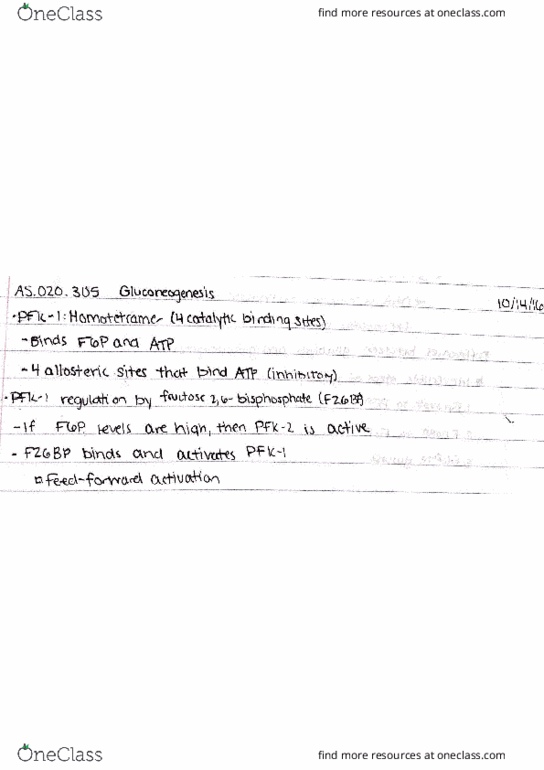 OneClass find more resources at oneclass.com
AS.020.305 Gluconeogenesis 10/14/16
·PFK-1: Homotetramer (4 catalytic binding sites)
-Binds F6P and ATP
-4 allosteric sites that bind ATP (inhibitory)
·PFK-1 regulation by fructose 2,6-bisphosphate (F26BP)
-If F6P levels are high, then PFK-2 is active
- F26BP binds and activates PFK-1
□ Feed-forward activation
OneClass find more resources at oneclass.com